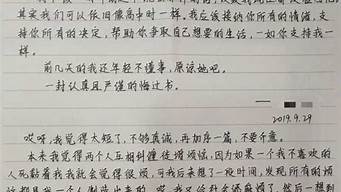 其实我们可以依旧像高中时一样。我应该接纳你所有的情绪,支
持你所有的决定,帮助你争取自己想要的生活,一如你支持我一
样。
前几天的我还年轻不懂事,原谅她吧。
一封认真且严谨的悔过书。
2019.9.29
哎呀,我觉得太短了,不够真诚,再加序一篇,不要介意。
本来我觉得两个人互相纠缠徒增烦恼,因为如果一个我不喜欢的
人死黏着我我就会觉得很烦,可我后来想了一段时间,发现所有的烦